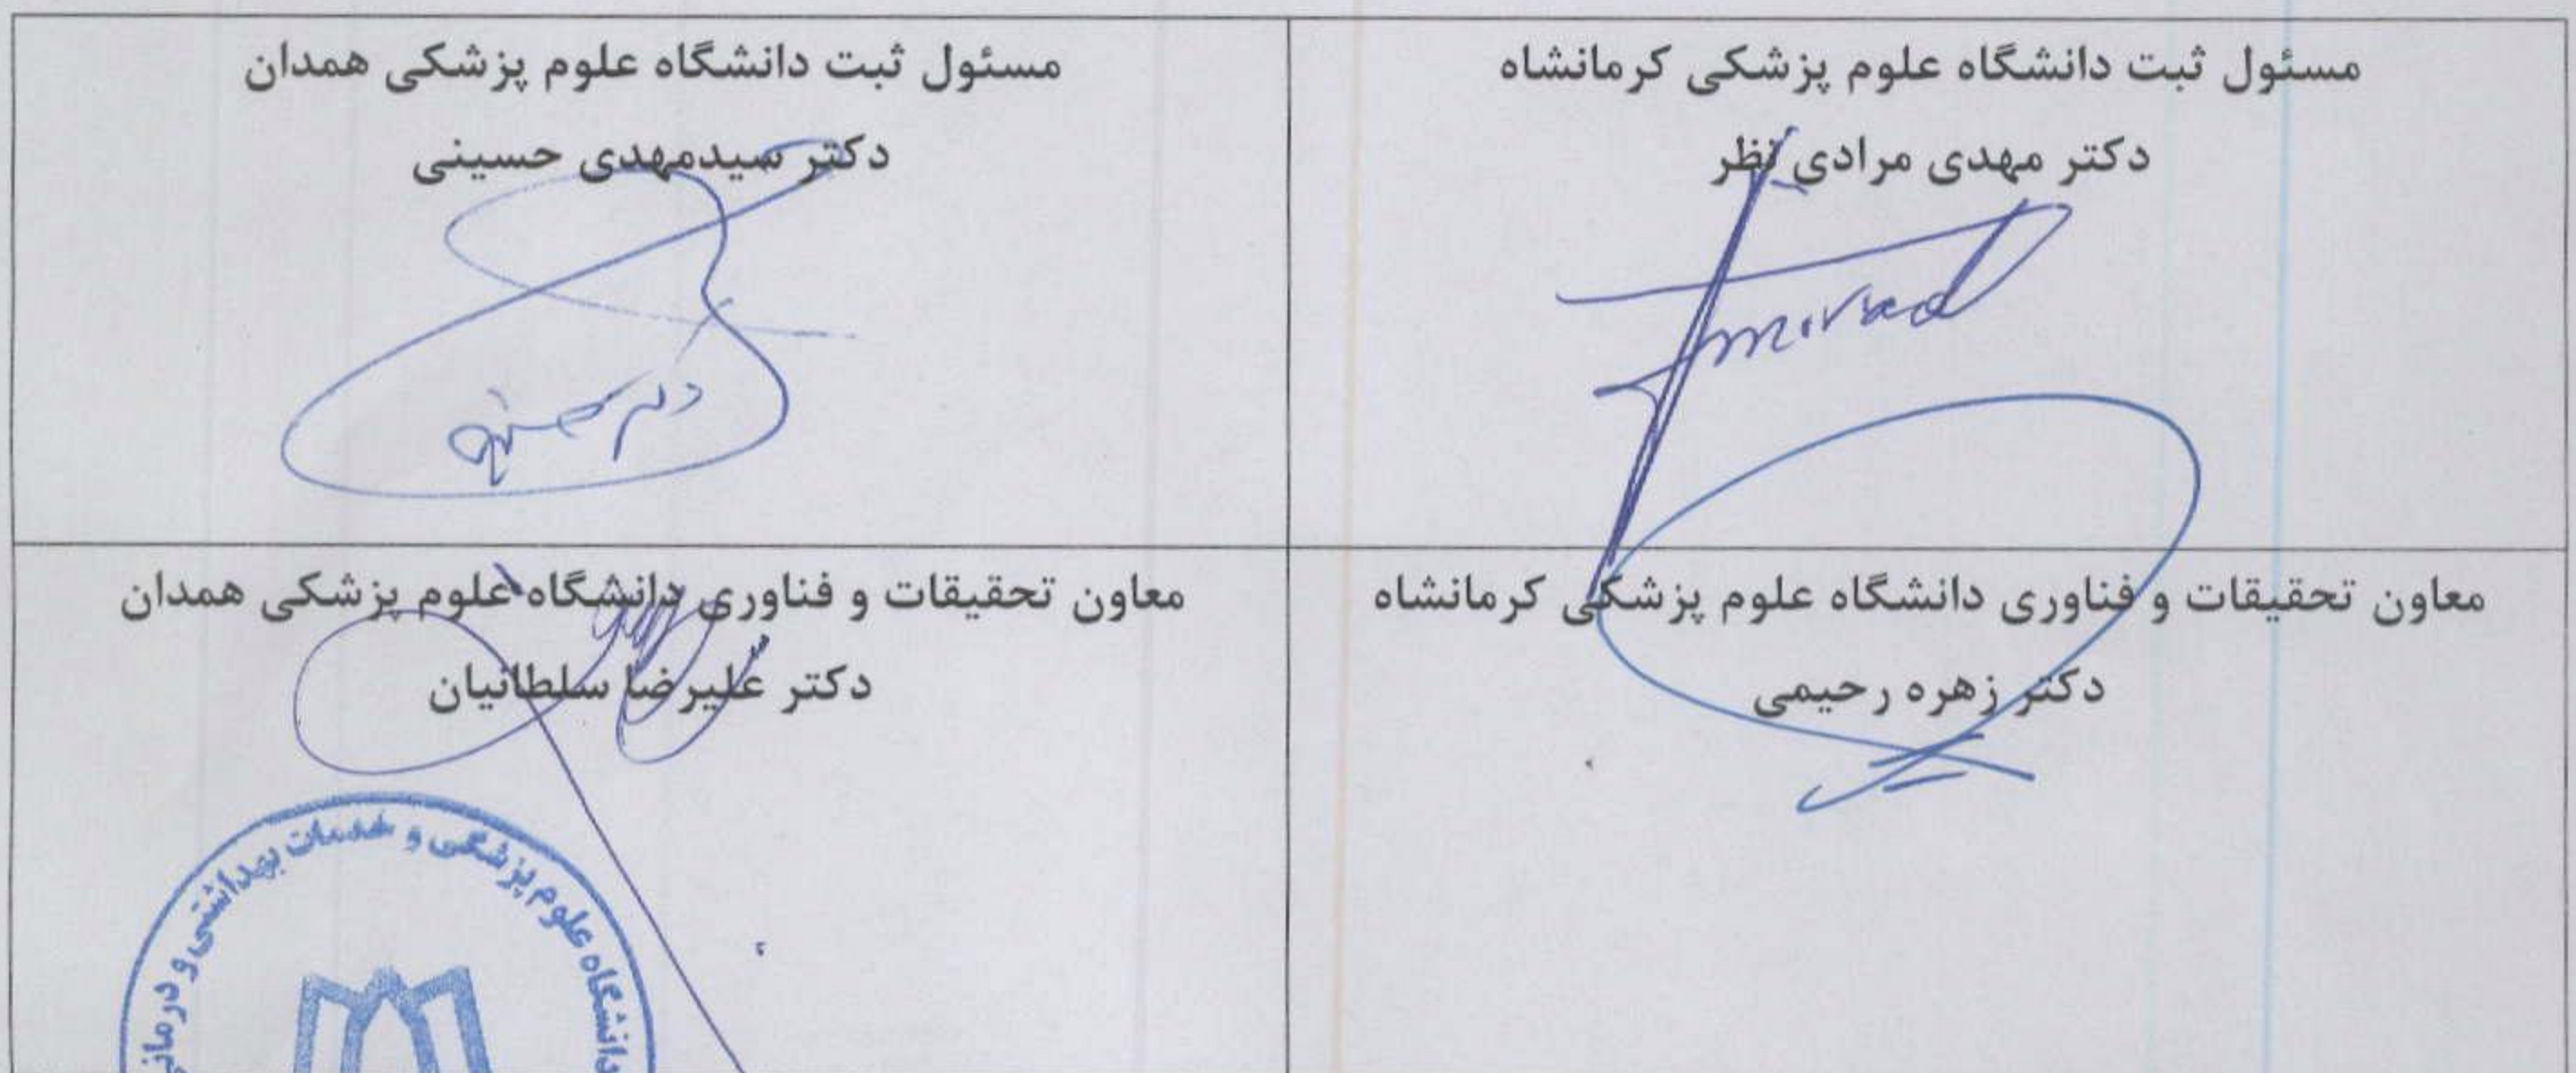 مسئول ثبت دانشگاه علوم پزشکی کرمانشاه
دکتر مهدی مرادی نظر
morad
مسئول ثبت دانشگاه علوم پزشکی همدان
دکتر سیدمهدی حسینی
دکتر حسینی
معاون تحقیقات و فناوری دانشگاه علوم پزشکی کرمانشاه
دکتر زهره رحیمی
معاون تحقیقات و فناوری دانشگاه علوم پزشکی همدان
دکتر علیرضا سلطانیان
دانشگاه علوم پزشکی و خدمات بهداشتی و درمانی